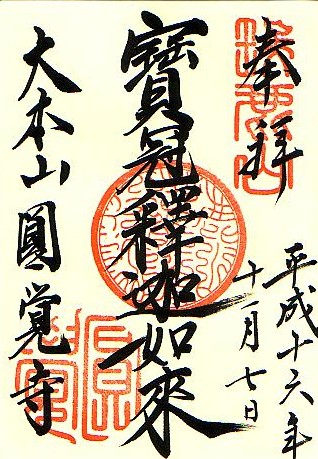 奉拝
平成十六年
十一月七日
寶冠釋迦如來
大本山圓覺寺